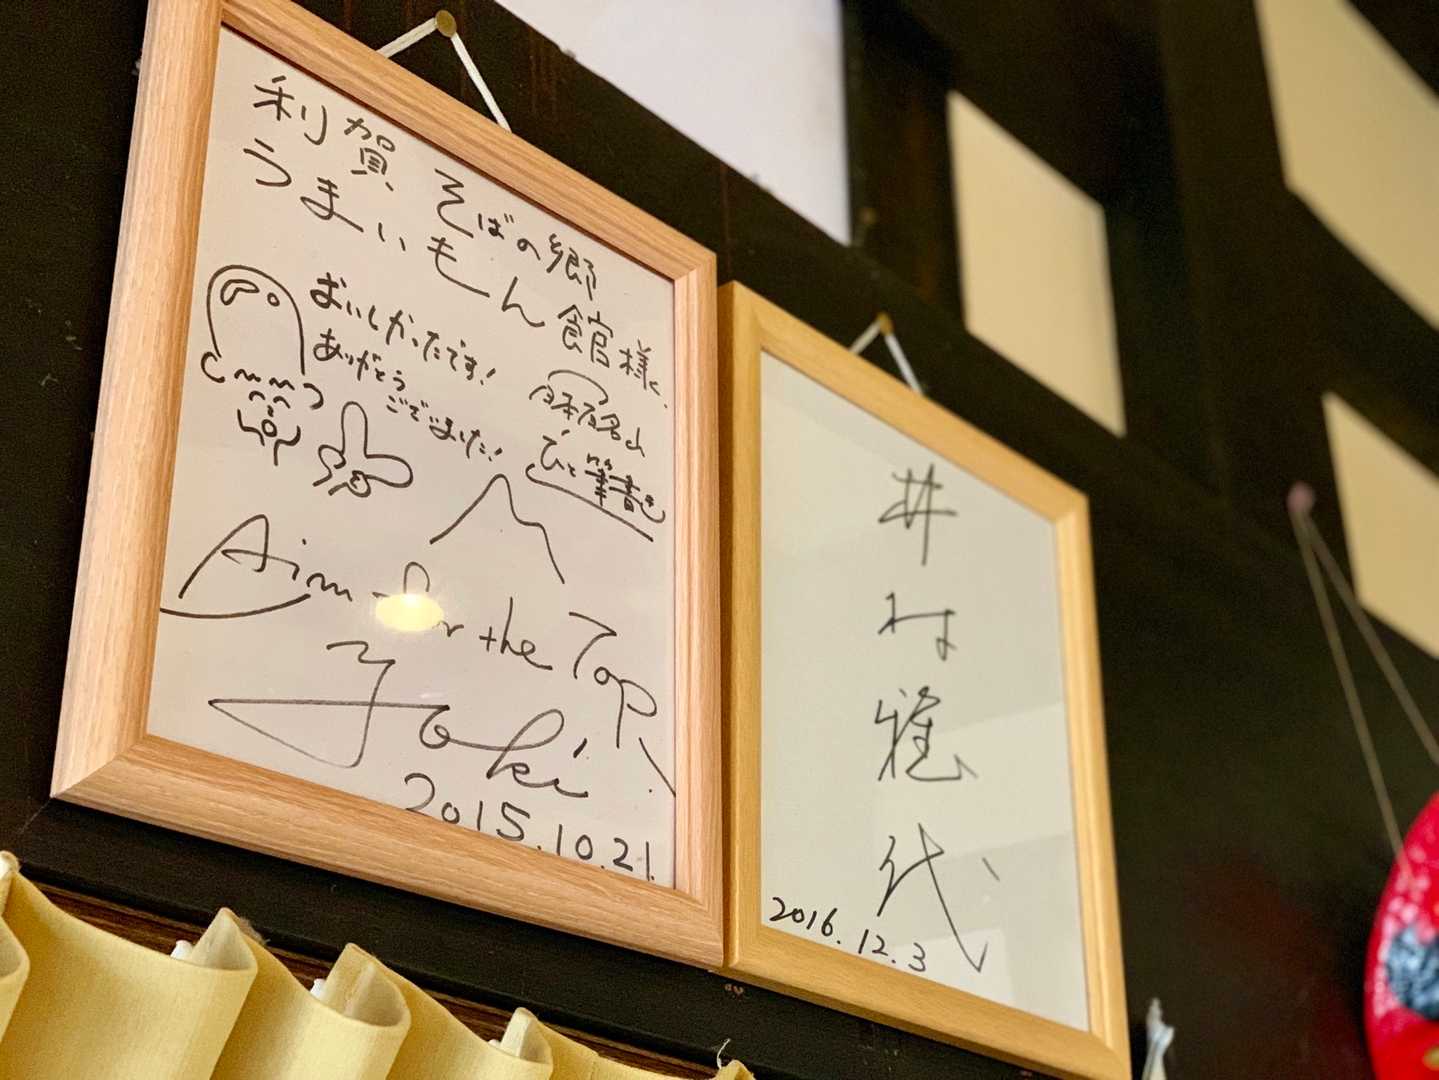 利賀 そばの郷
うまいもん館様
おいしかったです!
ありがとう
ございました!
日本百名山
ひと筆書き
Aim for the Top
Yoki
2015.10.21.
井村雅代
2016.12.3